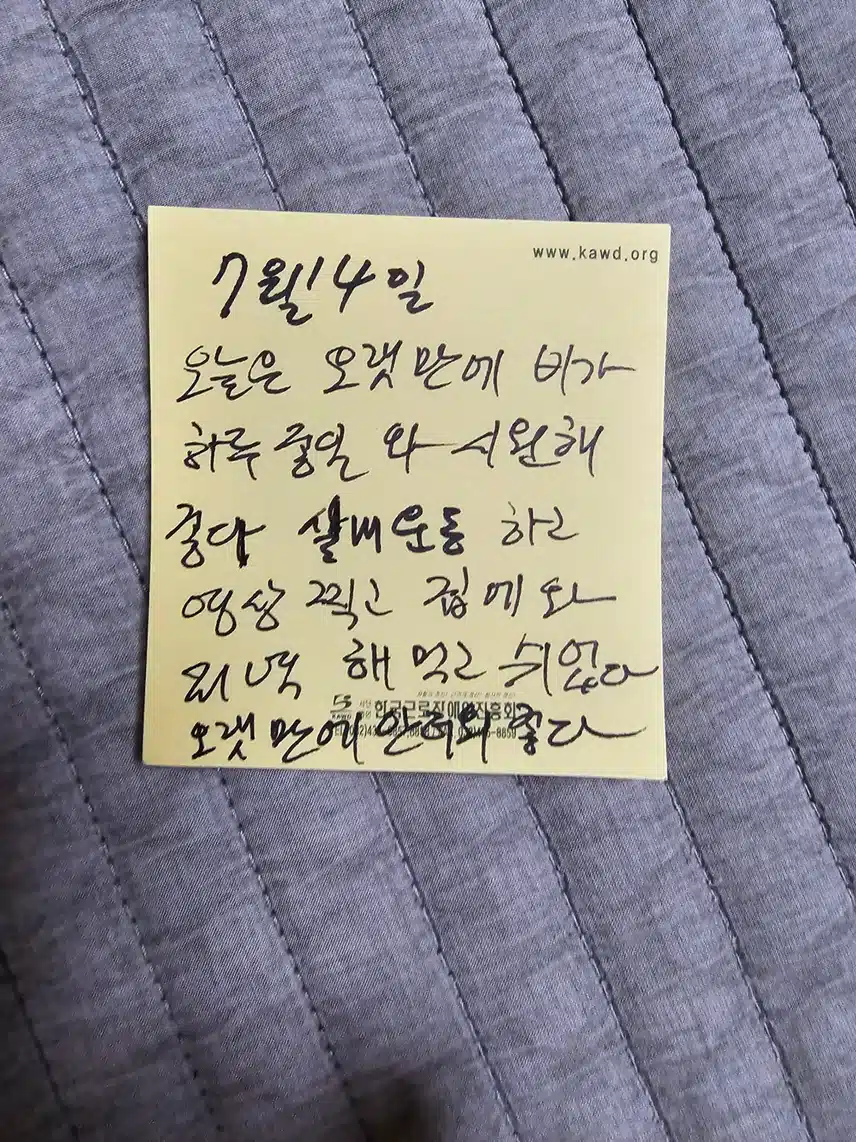 www.kawd.org
7월 14일
오늘은 오랫만에 비가
하루 종일 와 시원해
좋다 실내운동 하고
영상 찍고 집에 와
저녁 해 먹고 쉬었다
한국근로장애인진흥회
오랫만에 안더워 좋다